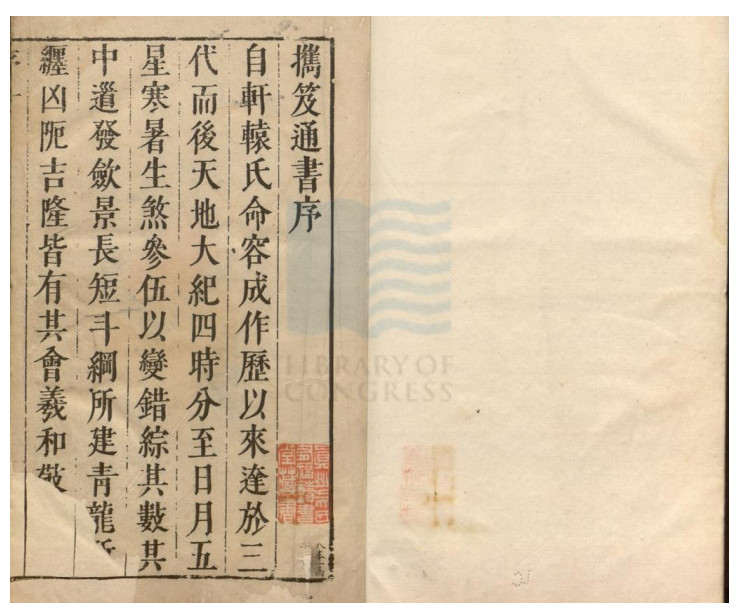 攜笈通書序
自軒轅氏命容成作歷以來逹於三
代而後天地大紀四時分至日月五
星寒暑生煞參伍以變錯綜其數其
中道發斂景長短斗綱所建青龍所
纏凶阨吉隆皆有其會羲和敬
序 一
LIBRARY OF
CONGRESS